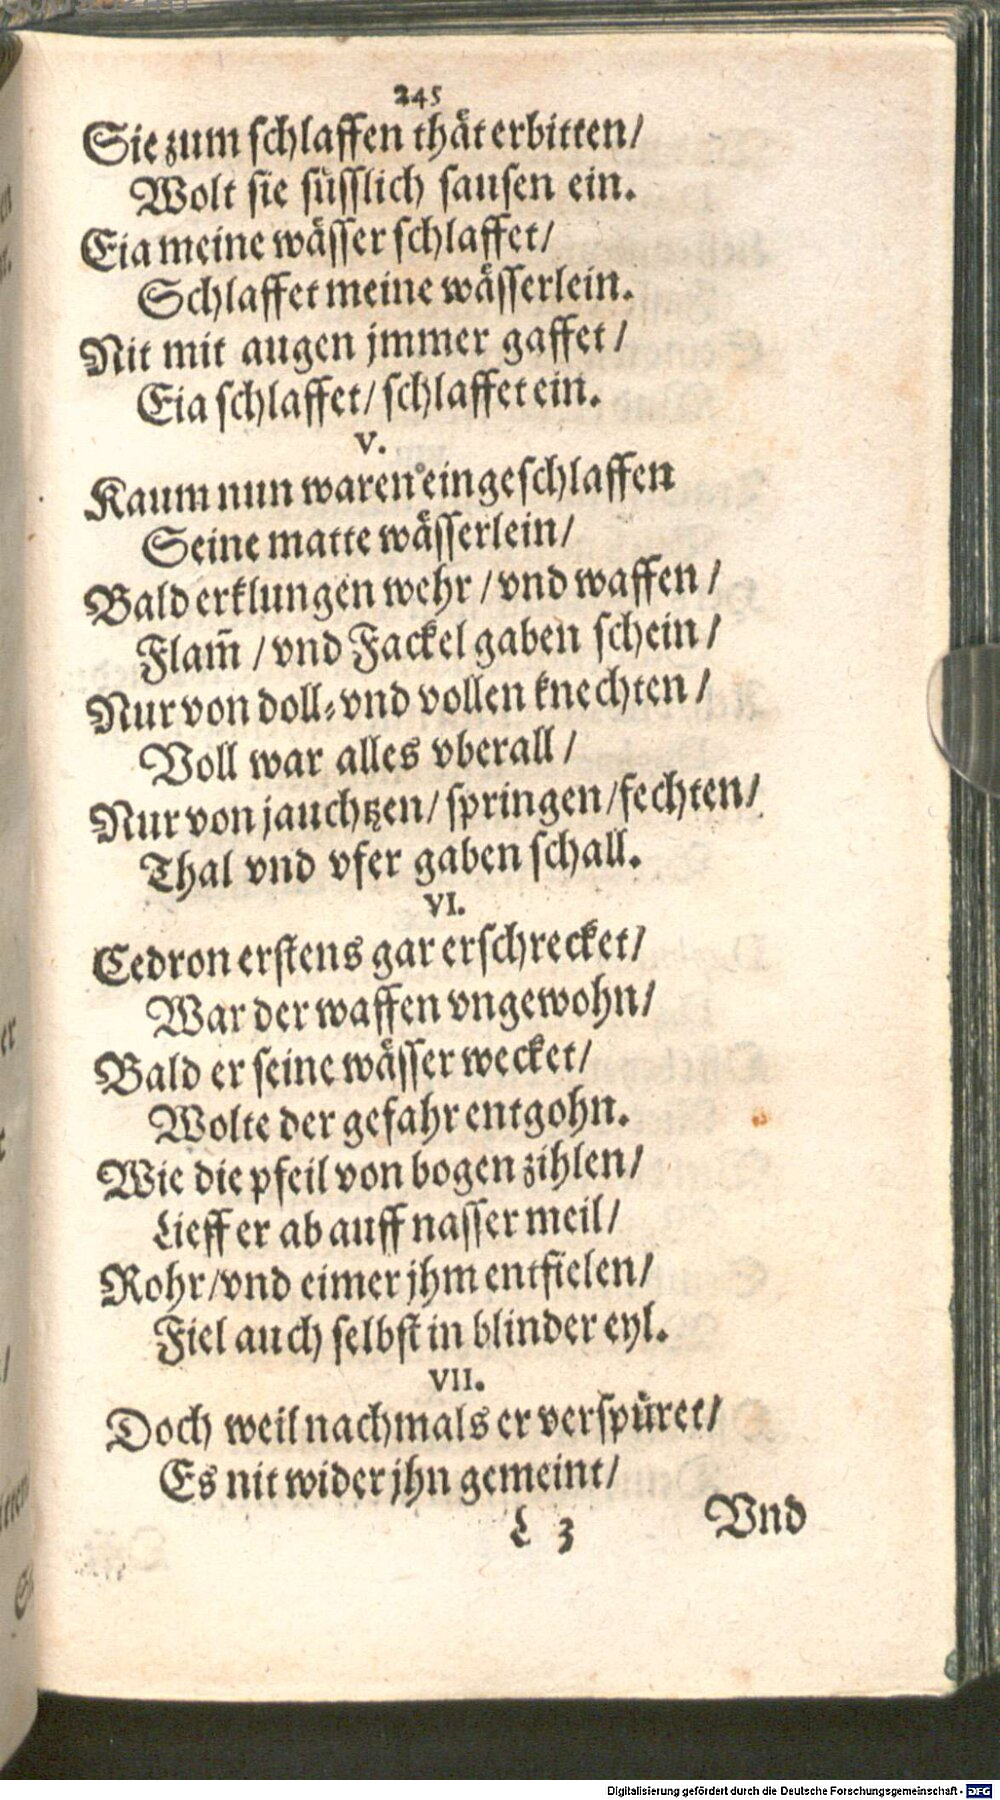 245
Sie zum schlaffen thät erbitten/
Wolt sie süsslich sausen ein.
Eia meine wässer schlaffet/
Schlaffet meine wässerlein.
Nit mit augen jmmer gaffet/
Eia schlaffet/ schlaffet ein.
V.
Kaum nun waren eingeschlaffen
Seine matte wässerlein/
Bald erklungen wehr/ vnd waffen/
Flam̃/ vnd Fackel gaben schein/
Nur von doll- vnd vollen knechten/
Voll war alles vberall/
Nur von jauchtzen/ springen/ fechten/
Thal vnd vfer gaben schall.
VI.
Cedron erstens gar erschrecket/
War der waffen vngewohn/
Bald er seine wässer wecket/
Wolte der gefahr entgohn.
Wie die pfeil von bogen zihlen/
Lieff er ab auff nasser meil/
Rohr/ vnd eimer jhm entfielen/
Fiel auch selbst in blinder eyl.
VII.
Doch weil nachmals er verspüret/
Es nit wider jhn gemeint/
L 3 Vnd
Digitalisierung gefördert durch die Deutsche Forschungsgemeinschaft - DFG